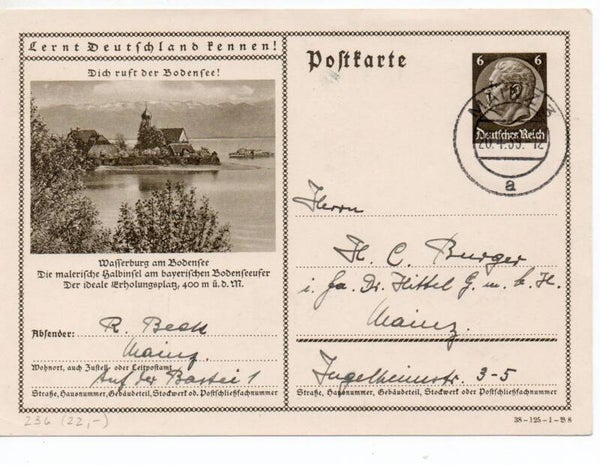 Lernt Deutschland kennen!
Dich ruft der Bodensee!
Wasserburg am Bodensee
Die malerische Halbinsel am bayerischen Bodenseeufer
Der ideale Erholungsplatz, 400 m ü. d. M.
Absender: R. Beck
Mainz
Wohnort, auch Zustell- oder Leitpostamt
Auf der Bastei 1
Straße, Hausnummer, Gebäudeteil, Stockwerk od. Postschließfachnummer
236 (22,-)
Postkarte
6 6
Deutsches Reich
MAINZ
a
Herrn
H. C. Burger
i. Fa. Dr. Hittel G. m. b. H.
Mainz.
Ingelheimstr. 3-5
Straße, Hausnummer, Gebäudeteil, Stockwerk oder Postschließfachnummer
38-125-1-B8